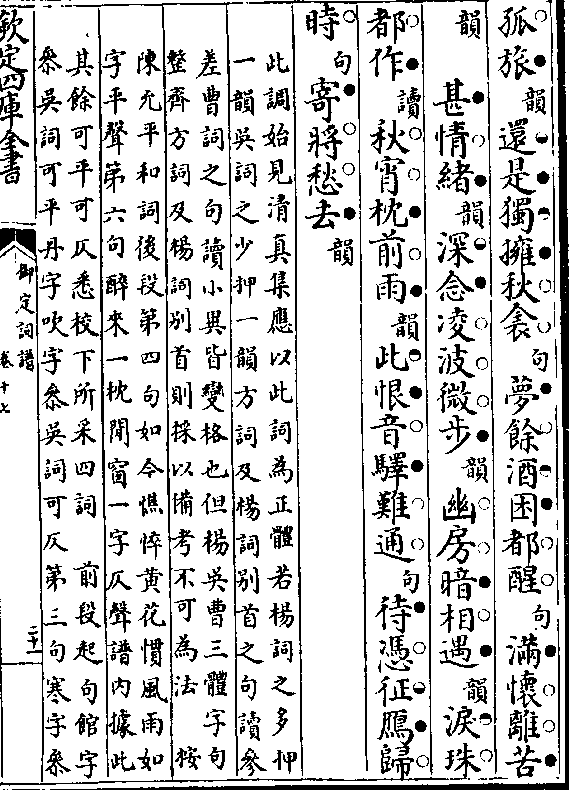 孤旅韻還是獨擁秋衾句夢餘酒困都醒句滿懷離苦
韻甚情緒韻深念凌波微步韻幽房暗相遇韻淚珠
都作讀秋宵枕前雨韻此恨音驛難通句待憑征鴈歸
時句寄將愁去韻
此調始見清真集應以此詞為正體若楊詞之多押
一韻吳詞之少押一韻方詞及楊詞別首之句讀參
差曹詞之句讀小異皆變格也但楊吳曹三體字句
整齊方詞及楊詞別首則採以備考不可為法 按
陳允平和詞後段第四句如今憔悴黃花慣風雨如
字平聲第六句醉來一枕閒窗一字仄聲譜內據此
其餘可平可仄悉校下所采四詞 前段起句館字
叅吳詞可平丹字吹字叅吳詞可仄第三句寒字叅
欽定四庫全書
御定詞譜
卷十七
二十